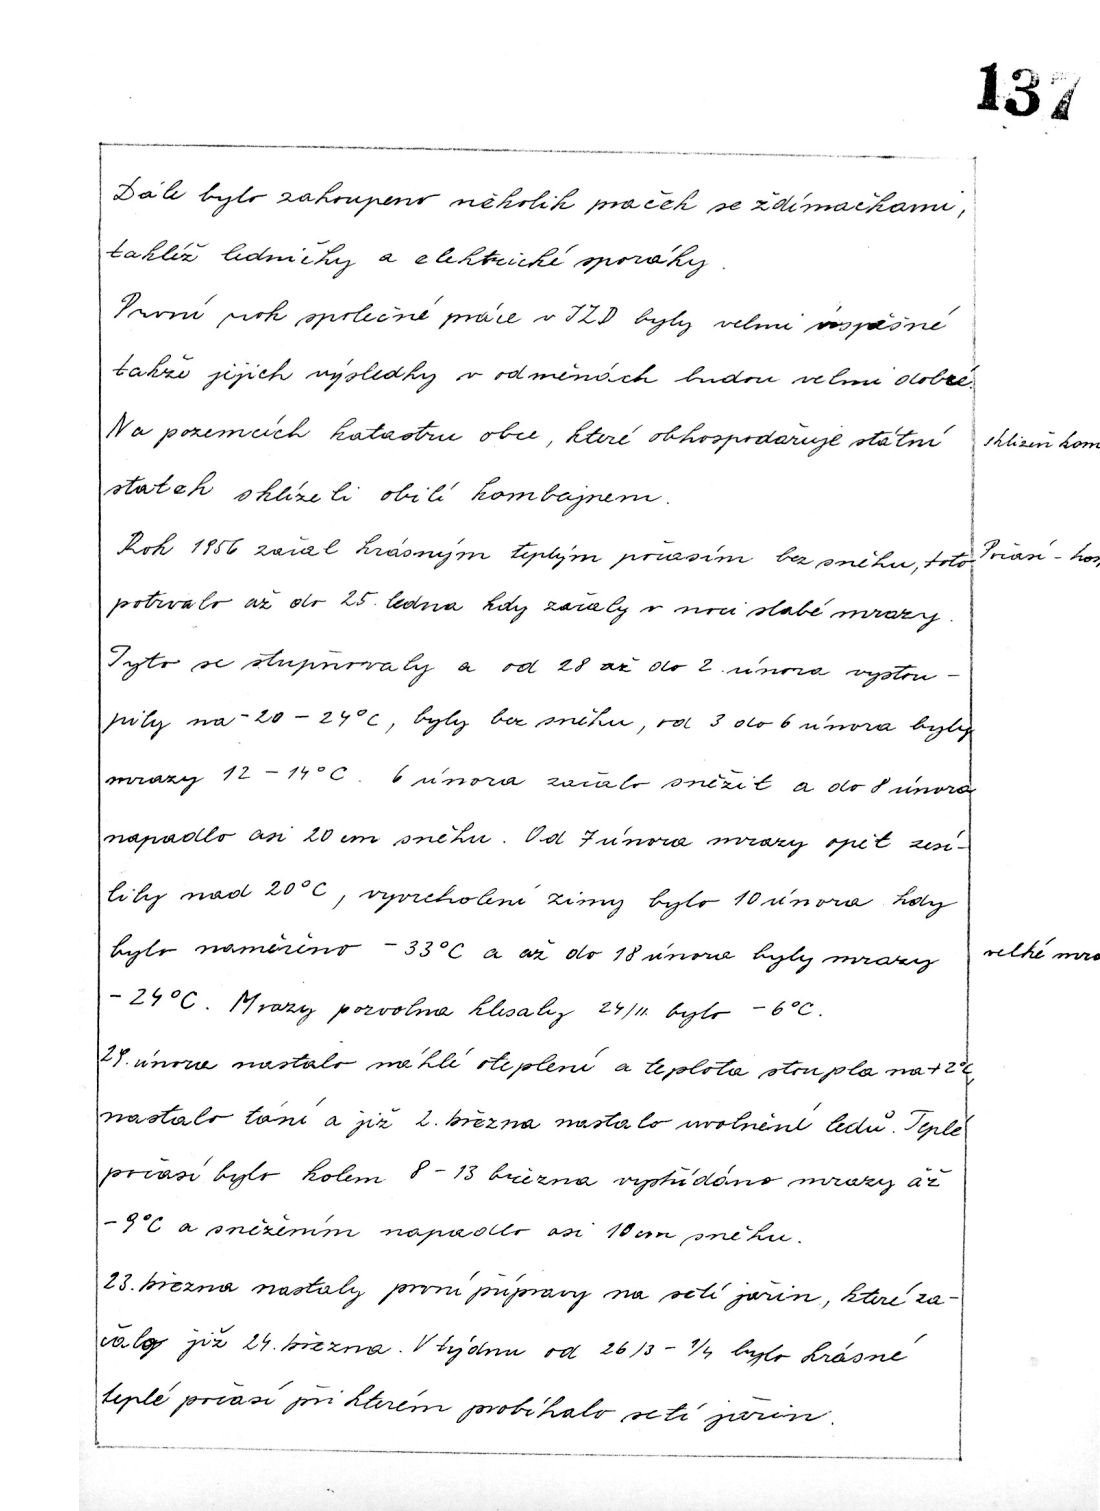 137
Dále bylo zakoupeno několik praček se ždímačkami,
taktéž ledničky a elektrické sporáky.
První rok společné práce v JZD byly velmi úspěšné
takže jejich výsledky v odměnách budou velmi dobré.
Na pozemcích katastru obce, které obhospodařuje státní
sklizeň kom
statek sklízeli obilí kombajnem.
Rok 1956 začal krásným teplým počasím bez sněhu, toto
Počasí - hos
potrvalo až do 25. ledna kdy začaly v noci slabé mrazy.
Tyto se stupňovaly a od 28 až do 2. února vystou-
pily na -20 - 24°C, byly bez sněhu, od 3 do 6 února byly
mrazy 12 - 14°C. 6 února začalo sněžit a do 8 února
napadlo asi 20 cm sněhu. Od 7 února mrazy opět zesí-
lily nad 20°C, vyvrcholení zimy bylo 10 února kdy
bylo naměřeno -33°C a až do 18 února byly mrazy
velké mra
-24°C. Mrazy pozvolna klesaly 24/II. bylo -6°C.
29. února nastalo náhlé oteplení a teplota stoupla na +2°C,
nastalo tání a již 2. března nastalo uvolnění ledů. Teplé
počasí bylo kolem 8 - 13 března vystřídáno mrazy áž
-9°C a sněžením napadlo asi 10 cm sněhu.
23. března nastaly první přípravy na setí jařin, které za-
čalo již 24. března. V týdnu od 26/3 - 1/4 bylo krásné
teplé počasí při kterém probíhalo setí jařin.